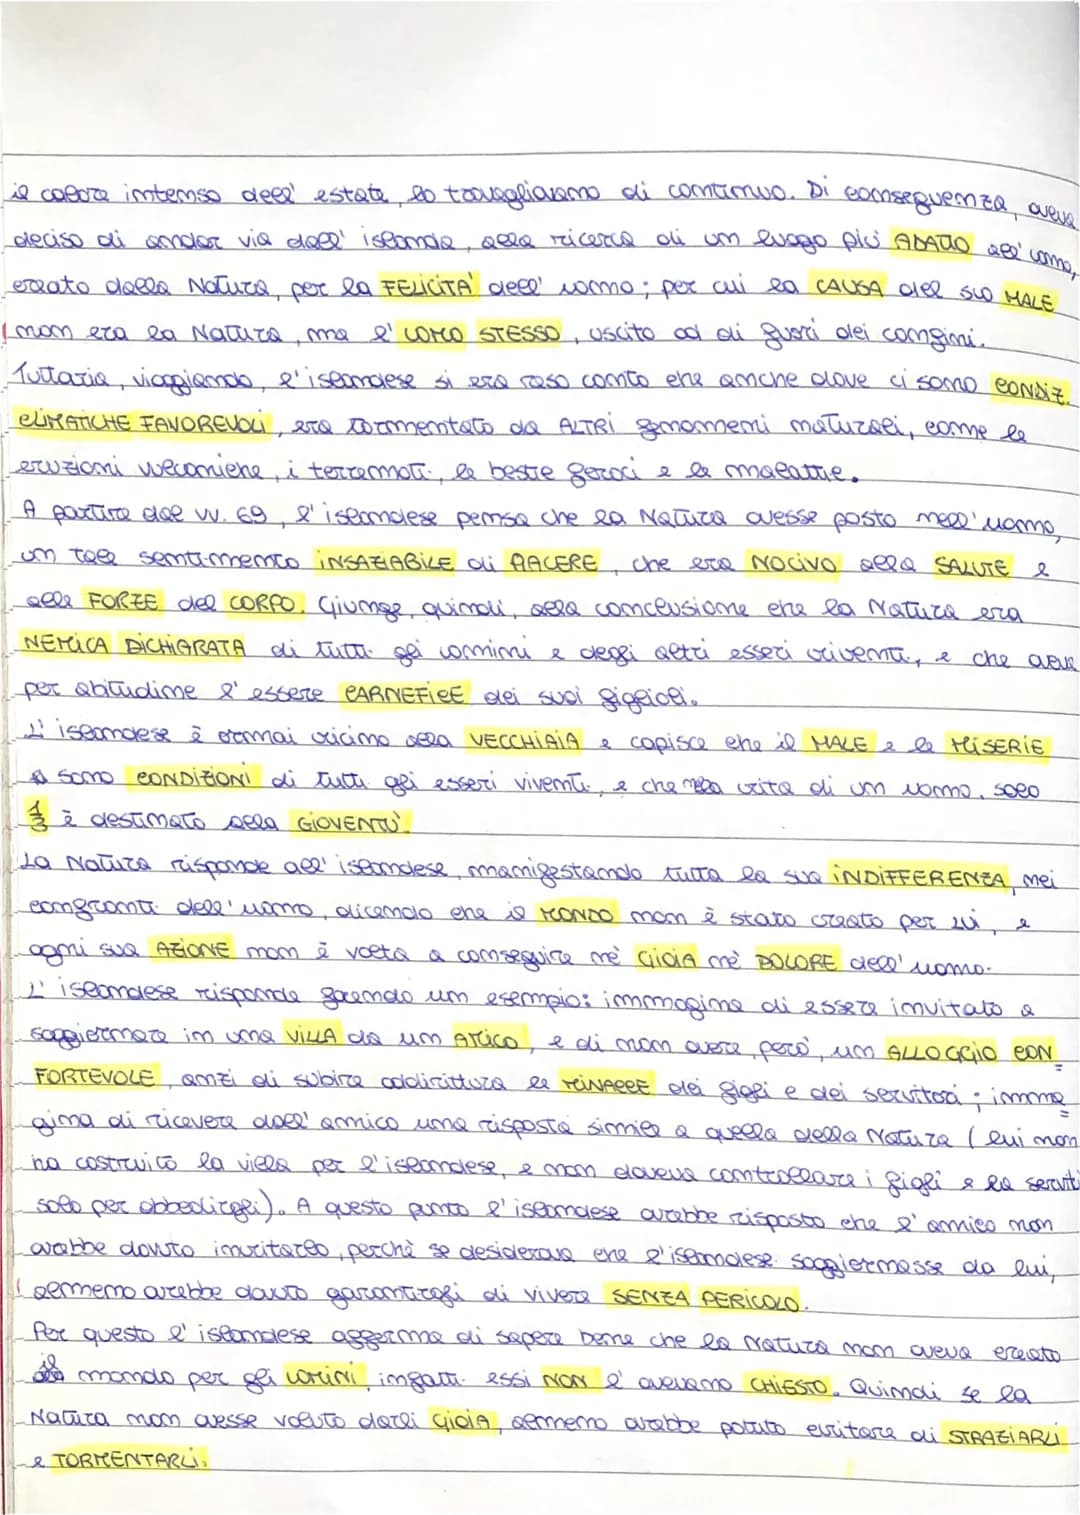 il calore intenso dell' estate, lo travagliavano di continuo. Di conseguenza, aveva
deciso di andar via dall' islanda, alla ricerca di un luogo più ADATTO all' uomo,
creato dalla Natura, per la FELICITÀ dell' uomo; per cui la CAUSA del suo MALE
non era la Natura, ma l' UOMO STESSO, uscito al di fuori dei confini.
Tuttavia, viaggiando, l'islandese si era reso conto che anche dove ci sono CONDIZ.
CLIMATICHE FAVOREVOLI, era tormentato da ALTRI fenomeni naturali, come le
eruzioni vulcaniche, i terremoti, le bestie feroci e le malattie.
A partire dal vv. 69, l'islandese pensa che la Natura avesse posto nell'uomo,
un tale sentimento iNSAZIABILE di PIACERE, che era NOCIVO alla SALUTE e
alle FORZE del CORPO. Giunge, quindi, alla conclusione che la Natura era
NEMICA DICHIARATA di tutti gli uomini e degli altri esseri viventi, e che aveva
per abitudine l' essere CARNEFICE dei suoi figlioli.
L' islandese è ormai vicino alla VECCHIAIA e capisce che il MALE e le MISERIE
sono CONDIZIONI di tutti gli esseri viventi, e che nella vita di un uomo, solo
1/3 è destinato alla GIOVENTÙ.
La Natura risponde all' islandese, manifestando tutta la sua iNDIFFERENZA, nei
confronti dell'uomo, dicendo che il MONDO non è stato creato per lui, e
ogni sua AZIONE non è volta a conseguire nè GIOIA nè DOLORE dell'uomo.
L' islandese risponde facendo un esempio: immagina di essere invitato a
soggiornare in una VILLA da un AMICO, e di non avere, però, un ALLOGGIO CON_
FORTEVOLE, anzi di subire addirittura le MINACCE dei figli e dei servitori; imma_
gina di ricevere dall' amico una risposta simile a quella della Natura (lui non
ha costruito la villa per l'islandese, e non doveva controllare i figli e la servitù
solo per obbedirgli). A questo punto l' islandese avrebbe risposto che l' amico non
avrebbe dovuto invitarlo, perchè se desiderava che l'islandese soggiornasse da lui,
nemmeno avrebbe dovuto garantirgli di vivere SENZA PERICOLO.
Per questo l' islandese afferma di sapere bene che la Natura non aveva creato
il mondo per gli UOMINI, infatti essi NON l' avevano CHIESTO. Quindi se la
Natura non avesse voluto darli GIOIA, nemmeno avrebbe potuto evitare di STRAZIARLI
e TORMENTARLI.